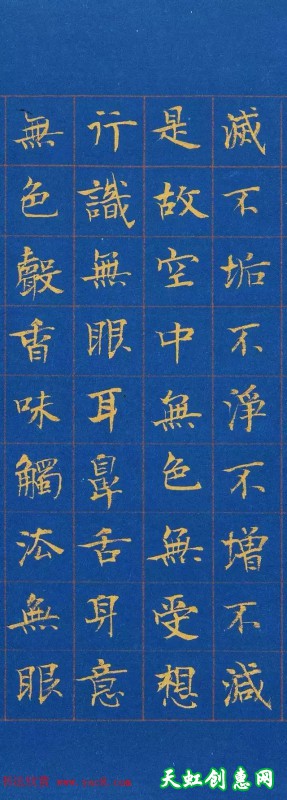 滅不垢不淨不增不減
是故空中無色無受想
行識無眼耳鼻舌身意
無色聲香味觸法無眼
天虹创惠网